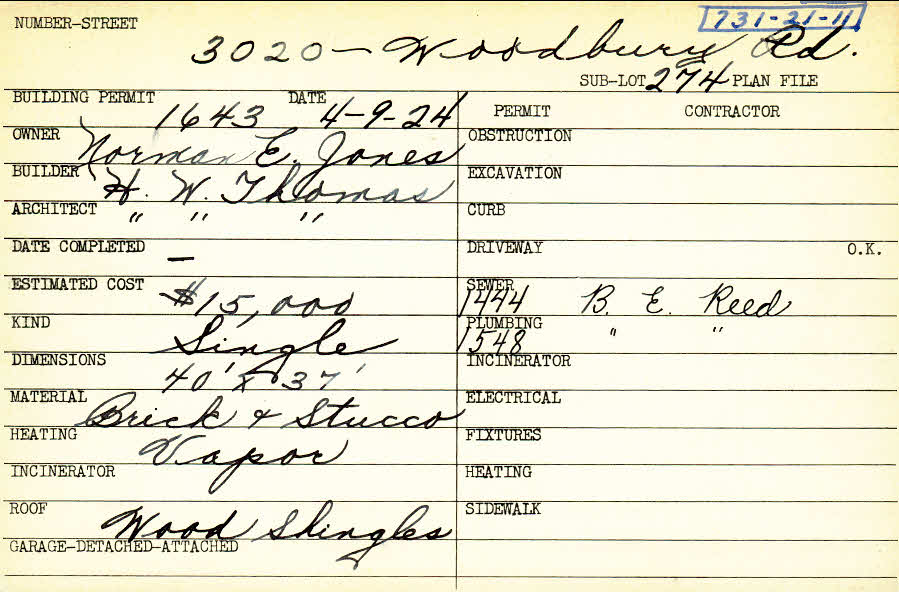 731-21-11
NUMBER-STREET
3020 - Woodbury Rd.
SUB-LOT 274 PLAN FILE
BUILDING PERMIT 1643 DATE 4-9-24
PERMIT CONTRACTOR
OWNER Norman E. Jones
OBSTRUCTION
BUILDER H. W. Thomas
EXCAVATION
ARCHITECT " " "
CURB
DATE COMPLETED -
DRIVEWAY O.K.
ESTIMATED COST $15,000
SEWER 1444 B. E. Reed
KIND Single
PLUMBING 1548 " "
DIMENSIONS 40' x 37'
INCINERATOR
MATERIAL Brick & Stucco
ELECTRICAL
HEATING Vapor
FIXTURES
INCINERATOR
HEATING
ROOF Wood Shingles
SIDEWALK
GARAGE-DETACHED-ATTACHED